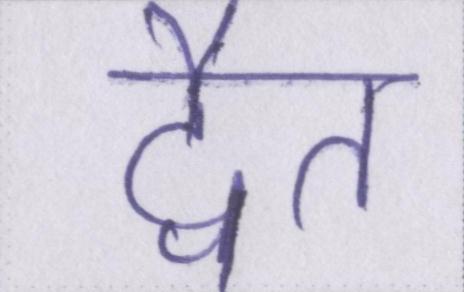 द्वैत